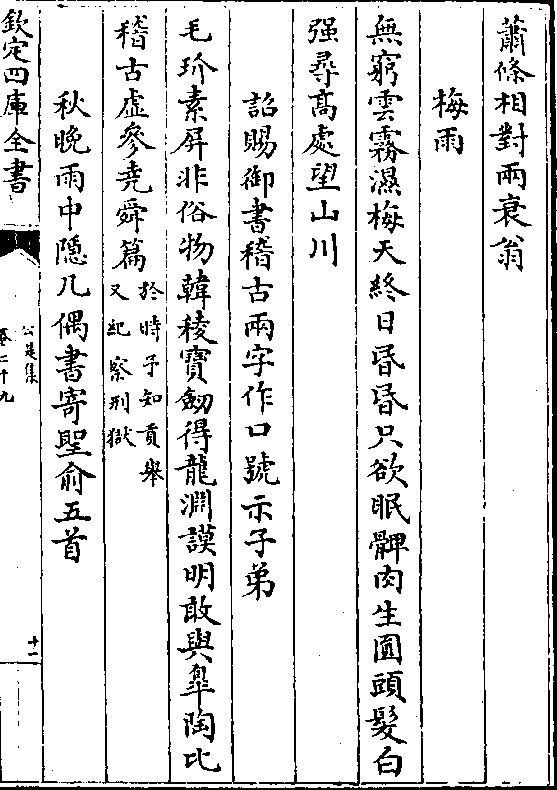 蕭條相對兩衰翁
梅雨
無窮雲霧濕梅天終日昏昏只欲眠髀肉生圓頭髮白
强尋髙處望山川
詔賜御書稽古兩字作口號示子弟
毛玠素屏非俗物韓稜寶劒得龍淵謨明敢與臯陶比
稽古虛參堯舜篇於時予知貢舉
又紀察刑獄
秋晚雨中隱几偶書寄聖俞五首
欽定四庫全書
公是集
卷二十九
十一